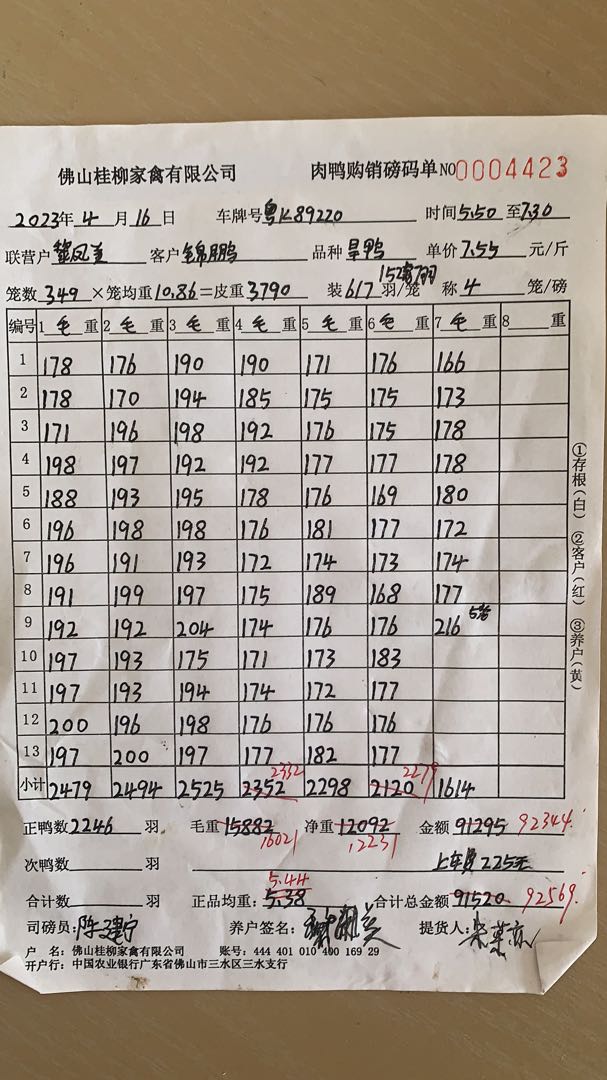 佛山桂柳家禽有限公司 肉鸭购销磅码单 NO 0004423
2023年 4 月 16 日 车牌号 粤K89220 时间 5.50 至 7.30
联营户 客户 锦鹏 品种 旱鸭 单价 7.55 元/斤
笼数 349 ×笼均重 10.86 =皮重 3790 装 617 羽/笼 称 4 笼/磅
编号 1 毛 重 2 毛 重 3 毛 重 4 毛 重 5 毛 重 6 毛 重 7 毛 重 8 重
1 178 176 190 190 171 176 166
2 178 170 194 185 175 175 173
3 171 196 198 192 176 175 178
4 198 197 192 192 177 177 178
5 188 193 195 178 176 169 180
6 196 198 198 176 181 177 172
7 196 191 193 172 174 173 174
8 191 199 197 175 189 168 177
9 192 192 204 174 176 176 216
10 197 193 175 171 173 183
11 197 193 194 174 172 177
12 200 196 198 176 176 176
13 197 200 197 177 182 177
2332 2279
小计 2479 2494 2525 2352 2298 2120 1614
正鸭数 2246 羽 毛重 15882 净重 12092 金额 91295 92344.
16021 12231
次鸭数 羽 上车费225元
5.44
合计数 羽 正品均重: 5.38 合计总金额 91520 92569.
司磅员: 陈建宁 养户签名: 提货人:
户 名: 佛山桂柳家禽有限公司 账号: 444 401 010 400 169 29
开户行: 中国农业银行广东省佛山市三水区三水支行
①存根(白) ②客户(红) ③养户(黄)